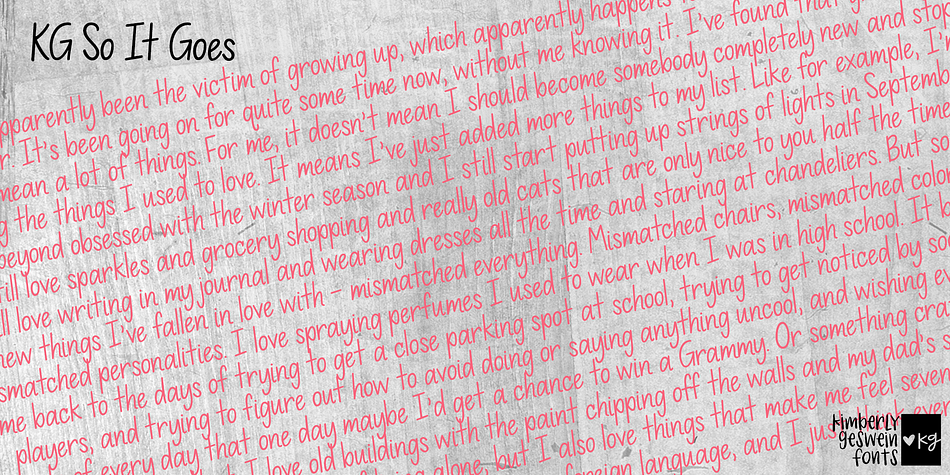 KG So It Goes
pparently been the victim of growing up, which apparently happens
r! It's been going on for quite some time now, without me knowing it. I've found that
mean a lot of things. For me, it doesn't mean I should become somebody completely new and stop
g the things I used to love. It means I've just added more things to my list. Like for example, I'm
beyond obsessed with the winter season and I still start putting up strings of lights in Septemb
till love sparkles and grocery shopping and really old cats that are only nice to you half the time
ll love writing in my journal and wearing dresses all the time and staring at chandeliers. But so
new things I've fallen in love with - mismatched everything. Mismatched chairs, mismatched color
smatched personalities. I love spraying perfumes I used to wear when I was in high school. It
me back to the days of trying to get a close parking spot at school, trying to get noticed by so
players, and trying to figure out how to avoid doing or saying anything uncool, and wishing e
of every day that one day maybe I'd get a chance to win a Grammy. Or something cra
I love old buildings with the paint chipping off the walls and my dad's s
alone, but I also love things that make me feel seven
language, and I just ever
kimberly
geswein
fonts
kg